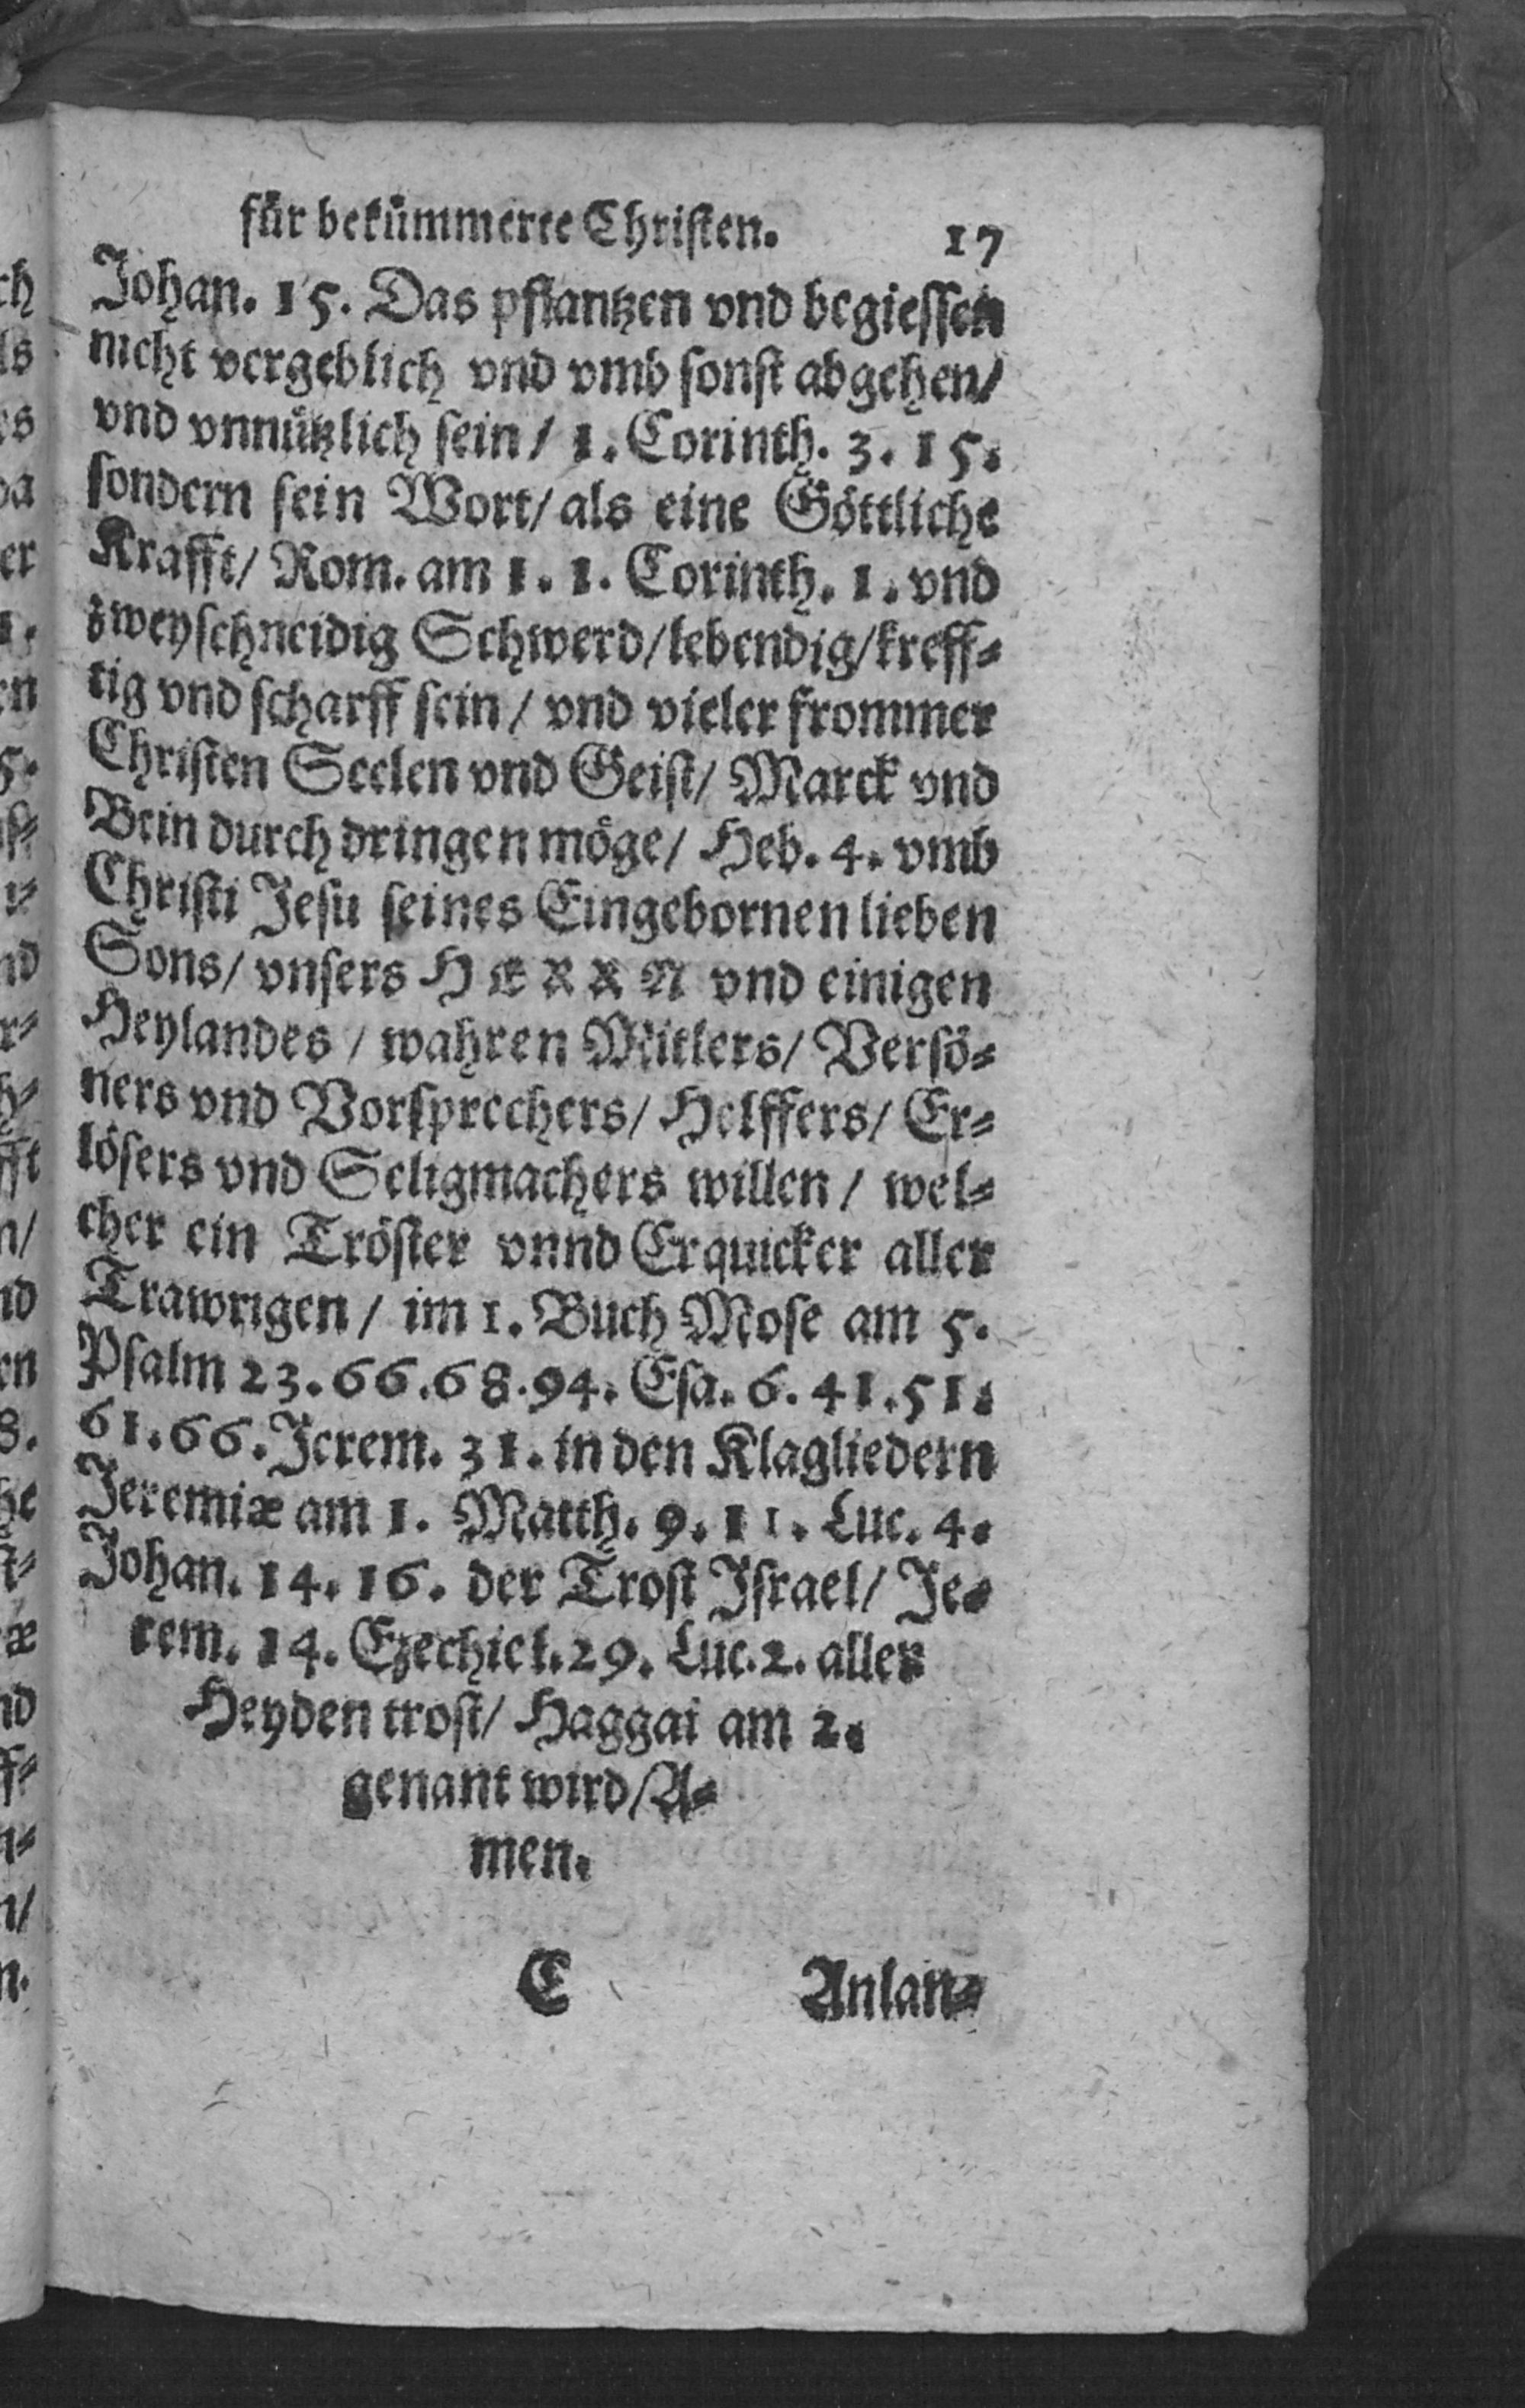 für bekümmerte Christen. 17
Johan. 15. Das pflantzen vnd begiessen
nicht vergeblich vnd vmb sonst abgehen/
vnd vnnützlich sein / 1. Corinth. 3. 15.
sondern sein Wort/ als eine Göttliche
Krafft/ Rom. am 1. 1. Corinth. 1. vnd
zweyschneidig Schwerd/ lebendig/ kreff-
tig vnd scharff sein / vnd vieler frommer
Christen Seelen vnd Geist/ Marck vnd
Bein durch dringen möge/ Heb. 4. vmb
Christi Jesu seines Eingebornen lieben
Sons/ vnsers HERRN vnd einigen
Heylandes / wahren Mitlers/ Versö-
ners vnd Vorsprechers/ Helffers/ Er-
lösers vnd Seligmachers willen / wel-
cher ein Tröster vnnd Erquicker aller
Trawrigen / im 1. Buch Mose am 5.
Psalm 23. 66. 68. 94. Esa. 6. 41. 51.
61. 66. Jerem. 31. in den Klagliedern
Jeremiæ am 1. Matth. 9. 11. Luc. 4.
Johan. 14. 16. der Trost Israel/ Je-
rem. 14. Ezechiel. 29. Luc. 2. aller
Heyden trost/ Haggai am 2.
genant wird/ A-
men.
C Anlan-